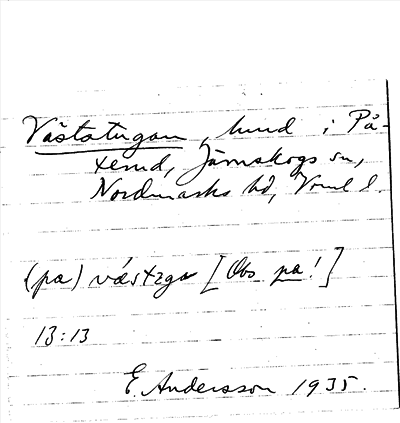 Västatugan, hmd i På-
terud, Järnskogs sn,
Nordmarks hd, Vrml l.
(pa) västzga [Obs pa!]
13:13
E. Andersson 1935.